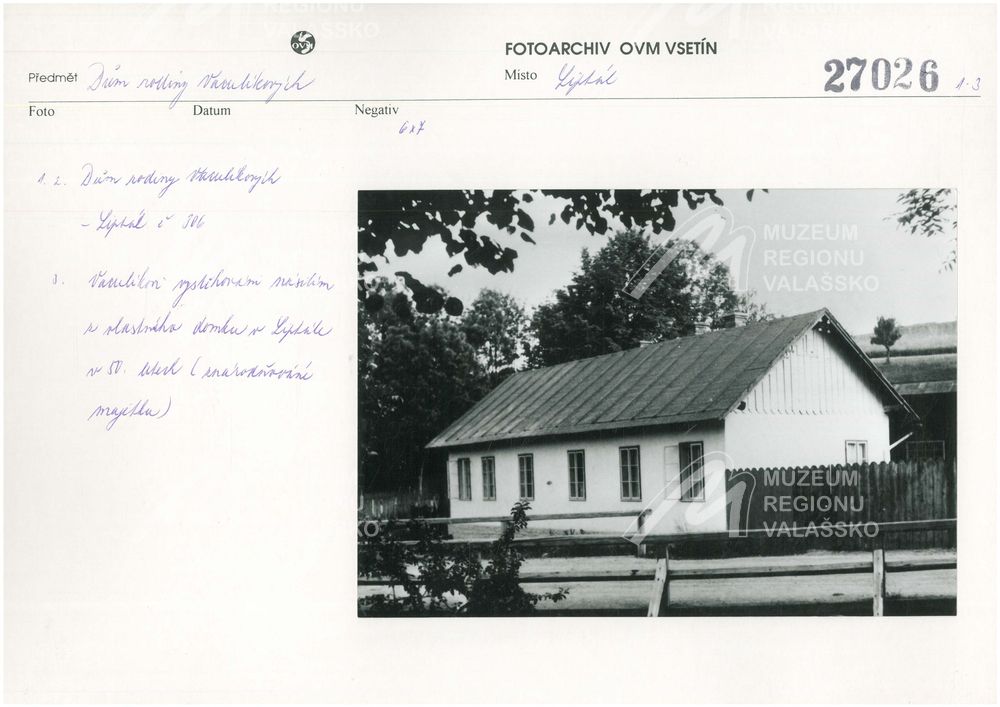 REGIONU
VALAŠSKO
OVM
FOTOARCHIV OVM VSETÍN
Předmět Dům rodiny Vaculíkových
Místo Liptál
27026 1-3
Foto
Datum
Negativ
6x7
1. 2. Dům rodiny Vaculíkových
- Liptál č 306
3. Vaculíkovi vystěhováni násilím
z vlastního domku v Liptále
v 50. letech (znárodňování
majetku)
MUZEUM
REGIONU
VALAŠSKO
MUZEUM
REGIONU
VALAŠSKO